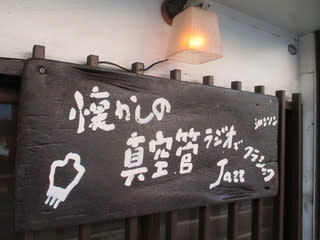 懐かしの
真空管ラジオで
Jazz
シャンソン
クラシック